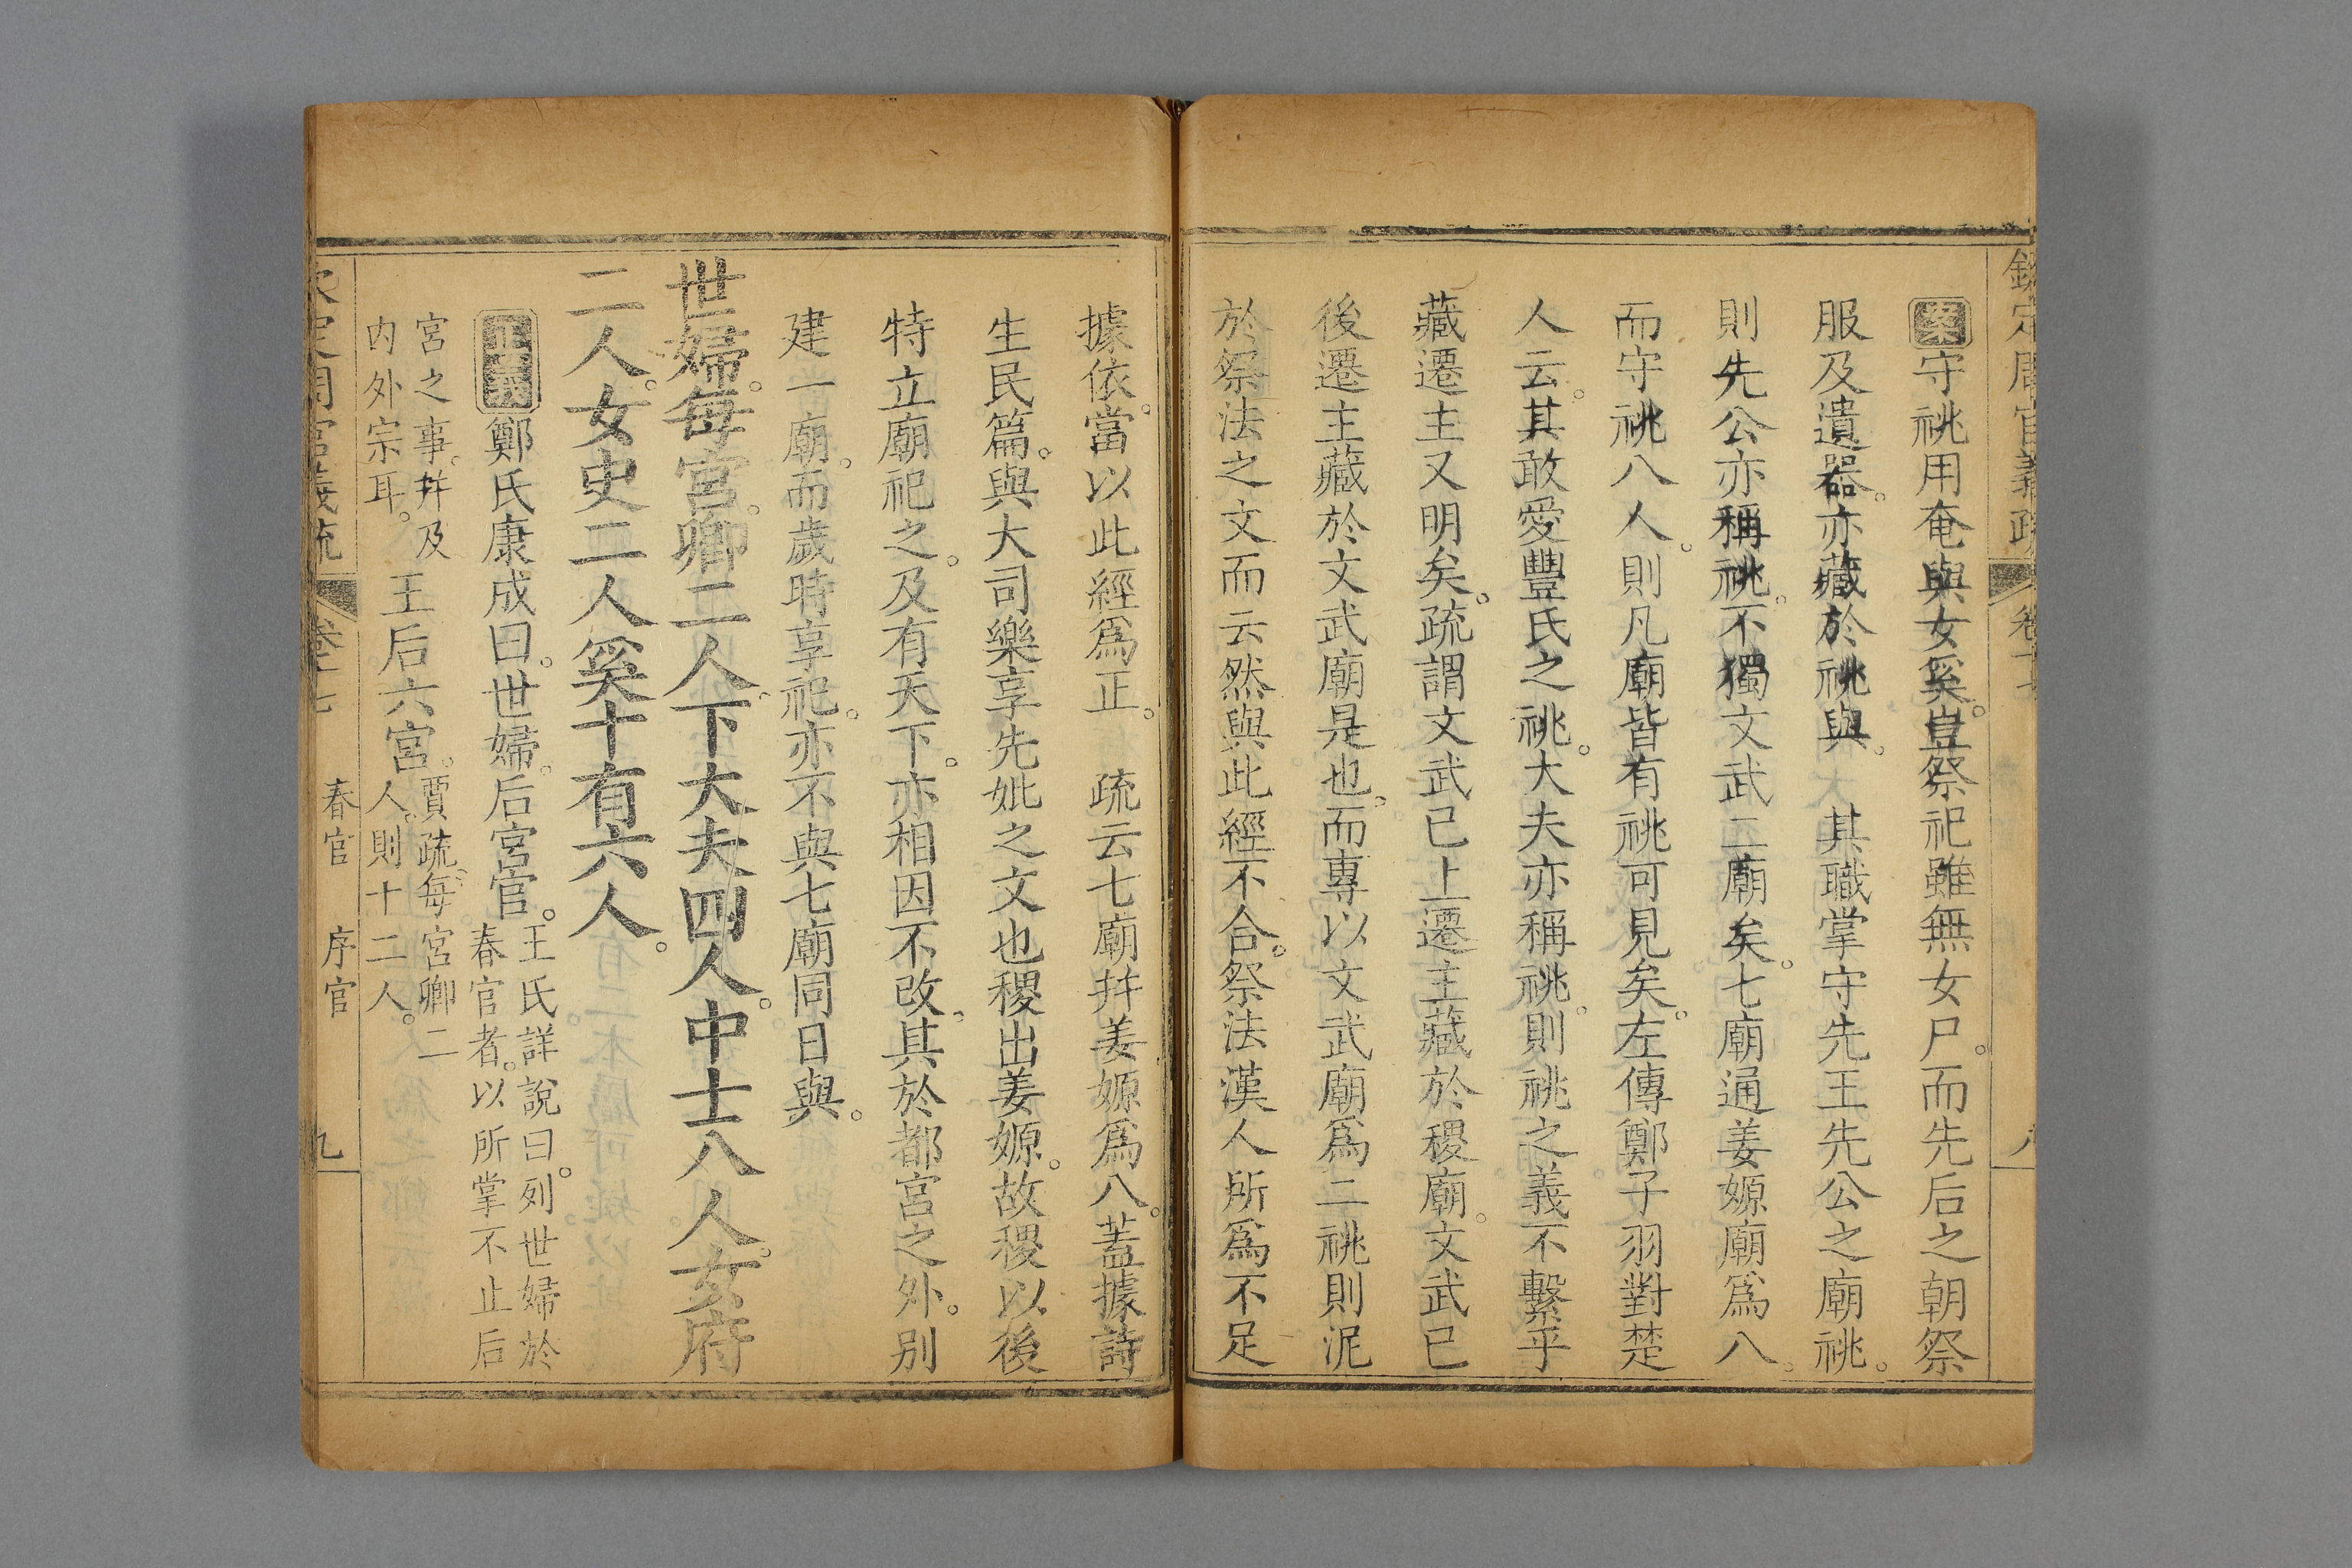 欽定周官義疏 卷十七 八
案守祧用奄與女奚。豈祭祀雖無女尸。而先后之朝祭
服及遺器。亦藏於祧與。 其職掌守先王先公之廟祧。
則先公亦稱祧。不獨文武二廟矣。七廟通姜嫄廟爲八。
而守祧八人。則凡廟皆有祧可見矣。左傳鄭子羽對楚
人云。其敢愛豐氏之祧。大夫亦稱祧。則祧之義不繫乎
藏遷主又明矣。疏謂文武已上遷主藏於稷廟。文武已
後遷主藏於文武廟是也。而專以文武廟爲二祧則泥
於祭法之文而云然與此經不合。祭法漢人所爲不足
據依。當以此經爲正。 疏云七廟幷姜嫄爲八。蓋據詩
生民篇。與大司樂享先妣之文也稷出姜嫄。故稷以後
特立廟祀之。及有天下。亦相因不改。其於都宮之外。別
建一廟。而歲時享祀。亦不與七廟同日與。
世婦。每宮。卿二人。下大夫四人。中士八人。女府
二人。女史二人奚十有六人。
正義鄭氏康成曰。世婦。后宮官。王氏詳說曰。列世婦於
春官者。以所掌不止后
宮之事。幷及
内外宗耳。王后六宮。賈疏。每宮卿二
人。則十二人。
欽定周官義疏 卷十七 春官 序官 九